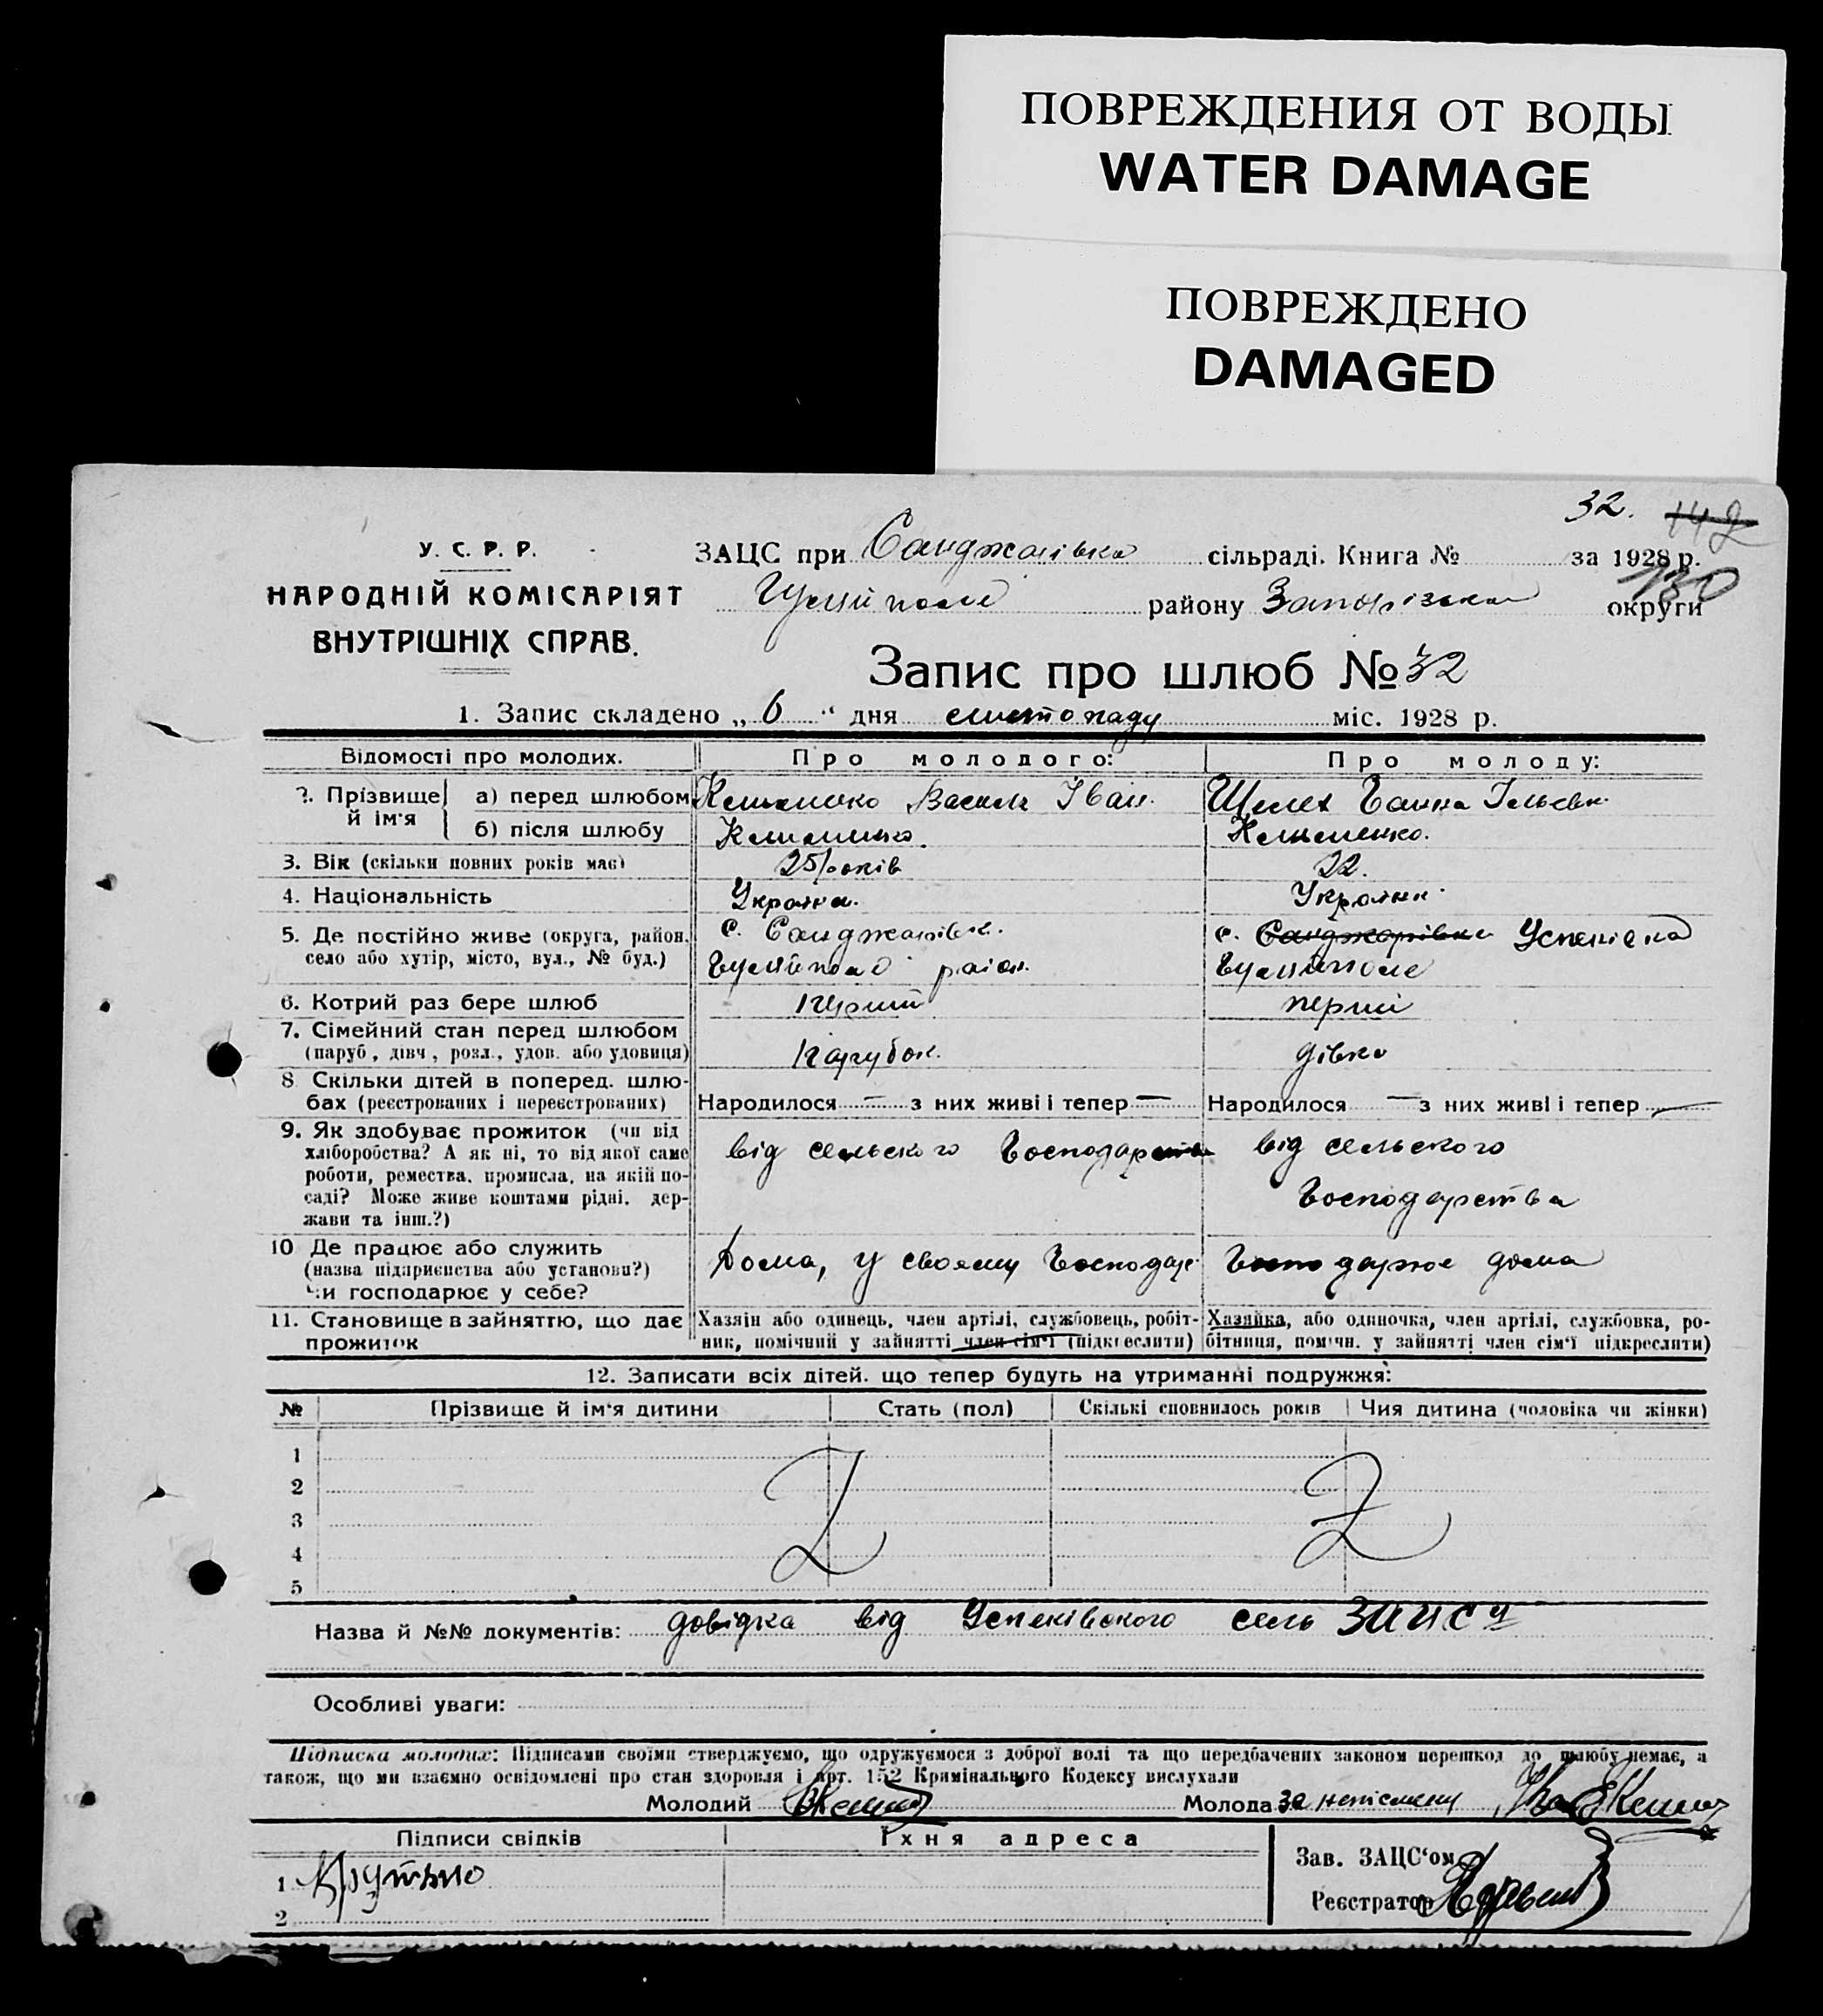 ПОВРЕЖДЕНИЯ ОТ ВОДЫ
WATER DAMAGE
ПОВРЕЖДЕНО
DAMAGED
32. 142
У. С. Р. Р.
НАРОДНІЙ КОМІСАРІЯТ
ВНУТРІШНІХ СПРАВ.
ЗАЦС при Санджарівка сільраді. Книга № за 1928 р.
130
району Запорізька округи
Запис про шлюб № 32
1. Запис складено „ 6 “ дня листопаду міс. 1928 р.
Відомості про молодих. Про молодого: Про молоду:
2. Прізвище й ім'я а) перед шлюбом Василь Іван. Ганна
б) після шлюбу Клименко. Клименко.
3. Вік (скільки повних років має) 25 років 22.
4. Національність Україна.
5. Де постійно живе (округа, район, с. Санджарівк. с. Санджарівка Успенівка
село або хутір, місто, вул., № буд.) район.
6. Котрий раз бере шлюб перший
7. Сімейний стан перед шлюбом
(паруб., дівч., розл., удов. або удовиця) Парубок. дівка
8 Скільки дітей в поперед. шлю-
бах (реєстрованих і нереєстрованих) Народилося — з них живі і тепер — Народилося — з них живі і тепер —
9. Як здобуває прожиток (чи від
хліборобства? А як ні, то від якої саме від сельського господарства від сельського
роботи, ремества, промисла, на якій по-
саді? Може живе коштами рідні, дер- господарства
жави та інш.?)
10 Де працює або служить
(назва підприємства або установи?) Дома, у своєму господар господарює дома
чи господарює у себе?
11. Становище в зайняттю, що дає Хазяїн або одинець, член артілі, службовець, робіт- Хазяйка, або одиночка, член артілі, службовка, ро-
прожиток ник, помічний у зайнятті член сім'ї (підкреслити) бітниця, помічн. у зайнятті член сім'ї підкреслити)
12. Записати всіх дітей, що тепер будуть на утриманні подружжя:
№ Прізвище й ім'я дитини Стать (пол) Скількі сповнилось років Чия дитина (чоловіка чи жінки)
1
2
3
4
5
Назва й №№ документів: довідка від Успенівського сель ЗАЦСу
Особливі уваги:
Підписка молодих: Підписами своїми стверджуємо, що одружуємося з доброї волі та що передбачених законом перешкод до шлюбу немає, а
також, що ми взаємно освідомлені про стан здоровля і Арт. 152 Кримінального Кодексу вислухали
Молодий Молода за неписьмену
Підписи свідків Їхня адреса
Зав. ЗАЦС'ом
1
Реєстратор
2